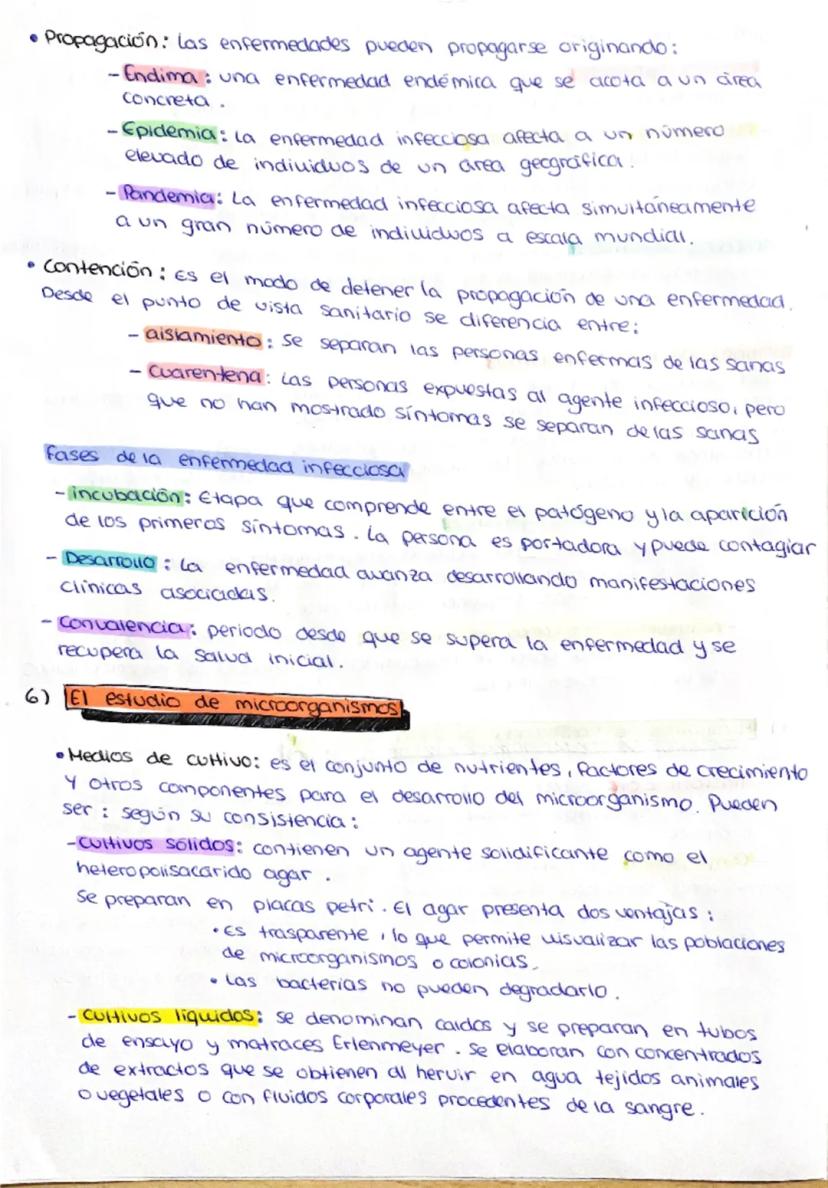 • Propagación: Las enfermedades pueden propagarse originando:
- Endima: una enfermedad endémica que se acota a un área
concreta.
- Epidemia: La enfermedad infecciosa afecta a un número
elevado de individuos de un área geográfica.
- Pandemia: La enfermedad infecciosa afecta simultáneamente
a un gran número de individuos a escala mundial.
• Contención: Es el modo de detener la propagación de una enfermedad.
Desde el punto de vista sanitario se diferencia entre:
- aislamiento: Se separan las personas enfermas de las sanas
- Cuarentena: Las personas expuestas al agente infeccioso, pero
que no han mostrado síntomas se separan de las sanas
Fases de la enfermedad infecciosa
- incubación: Etapa que comprende entre el patógeno y la aparición
de los primeros síntomas. La persona es portadora y puede contagiar
- Desarrollo: La enfermedad avanza desarrollando manifestaciones
clínicas asociadas.
- Convalencia: periodo desde que se supera la enfermedad y se
recupera la salud inicial.
6) El estudio de microorganismos
• Medios de cultivo: es el conjunto de nutrientes, factores de crecimiento
y otros componentes para el desarrollo del microorganismo. Pueden
ser: según su consistencia:
- Cultivos sólidos: contienen un agente solidificante como el
heteropolisacárido agar.
Se preparan en placas petri. El agar presenta dos ventajas:
• Es trasparente, lo que permite visualizar las poblaciones
de microorganismos o colonias.
• Las bacterias no pueden degradarlo.
- Cultivos líquidos: se denominan caldos y se preparan en tubos
de ensayo y matraces Erlenmeyer. Se elaboran con concentrados
de extractos que se obtienen al hervir en agua tejidos animales
o vegetales o con fluidos corporales procedentes de la sangre.